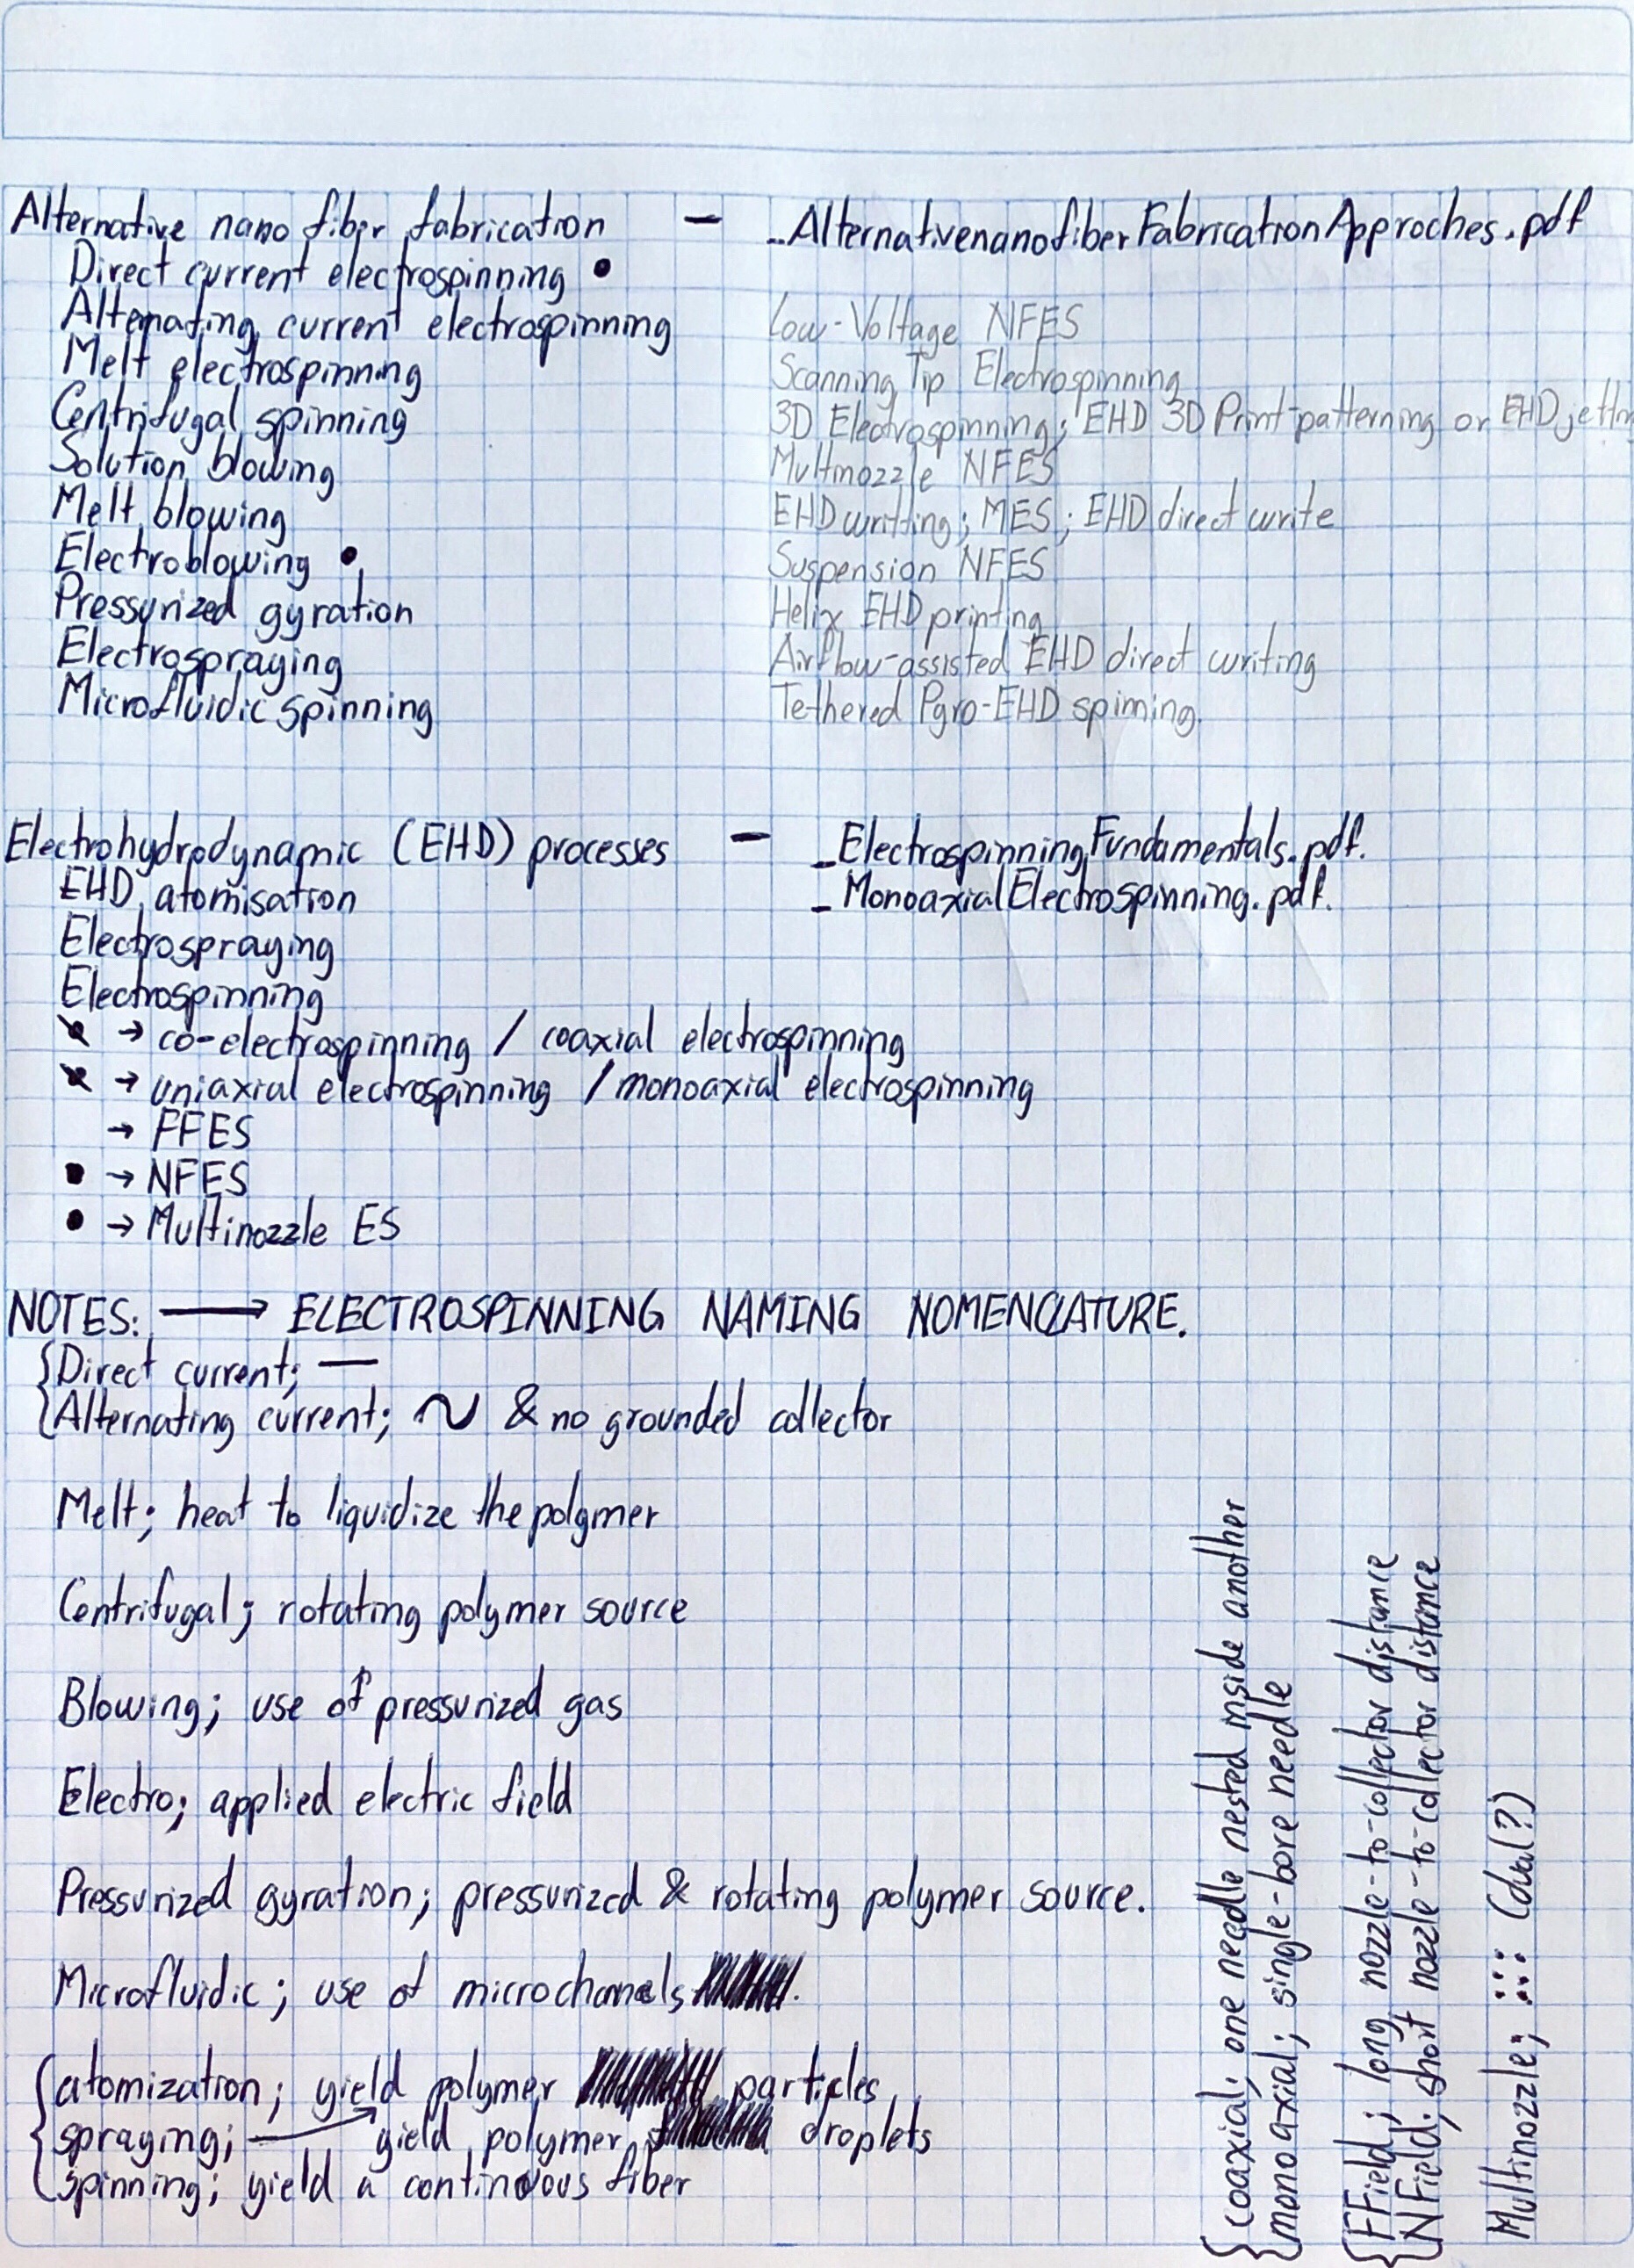 Alternative nano fiber fabrication — _AlternativenanofiberFabricationApproches.pdf
Direct current electrospinning •
Alternating current electrospinning
Melt electrospinning
Centrifugal spinning
Solution blowing
Melt blowing
Electroblowing •
Pressurized gyration
Electrospraying
Microfluidic spinning
Low-Voltage NFES
Scanning Tip Electrospinning
3D Electrospinning; EHD 3D Print-patterning or EHD jetting
Multinozzle NFES
EHD writting; MES; EHD direct write
Suspension NFES
Helix EHD printing
Airflow-assisted EHD direct writing
Tethered Pyro-EHD spinning.
Electrohydrodynamic (EHD) processes — _ElectrospinningFundamentals.pdf.
_MonoaxialElectrospinning.pdf.
EHD atomisation
Electrospraying
Electrospinning
→ co-electrospinning / coaxial electrospinning
→ uniaxial electrospinning / monoaxial electrospinning
→ FFES
• → NFES
• → Multinozzle ES
NOTES: ⟶ ELECTROSPINNING NAMING NOMENCLATURE.
{Direct current; —
Alternating current; ~ & no grounded collector
Melt; heat to liquidize the polymer
Centrifugal; rotating polymer source
Blowing; use of pressurized gas
Electro; applied electric field
Pressurized gyration; pressurized & rotating polymer source.
Microfluidic; use of microchannels.
{atomization; yield polymer particles
spraying; → yield polymer droplets
spinning; yield a continuous fiber
{coaxial; one needle nested inside another
monoaxial; single-bore needle
{FField; long nozzle-to-collector distance
NField; short nozzle-to-collector distance
Multinozzle; (dual?)